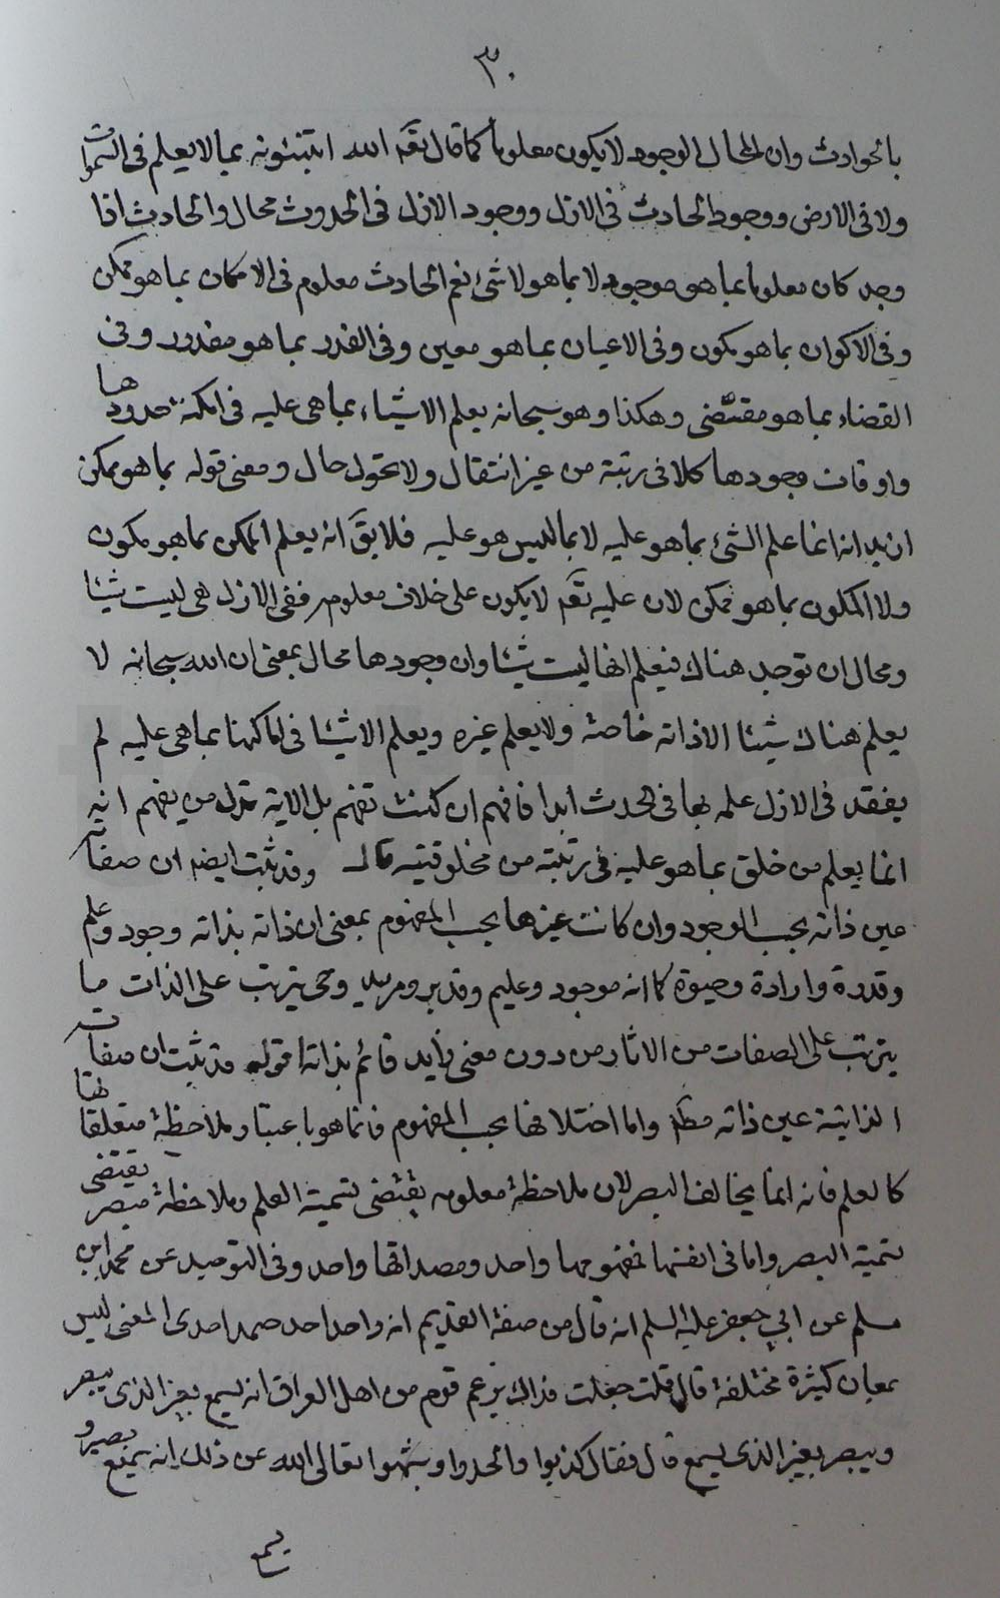 ٣٠
بالحوادث وان المحال الوجود لا يكون معلوما كما قال تعَ الله اتنبئونه بما لا يعلم فى السموات
ولا فى الارض ووجود الحادث فى الازل ووجود الازل فى الحدوث محال والحادث اذا
وجد كان معلوما بما هو موجود لا بما هو لا شئ نعم الحادث معلوم فى الامكان بما هو ممكن
وفى الاكوان بما هو مكون وفى الاعيان بما هو معين وفى القدر بما هو مقدور وفى
القضاء بما هو مقتضى وهكذا وهو سبحانه يعلم الاشياء بما هى عليه فى امكنة حدودها
واوقات وجودها كلا فى رتبة من غير انتقال ولا تحول حال ومعنى قوله بما هو ممكن
ان يد انه انما علم الشئ بما هو عليه لا بما ليس هو عليه فلا يقَ انه يعلم الممكن بما هو مكون
ولا المكون بما هو ممكن لان عليه تعَ لا يكون على خلاف معلومه ففى الازل هى ليست شيئا
ومحال ان توجد هناك فيعلم انها ليست شيئا وان وجودها محال بمعنى ان الله سبحانه لا
يعلم هناك شيئا الا ذاته خاصة ولا يعلم غيره ويعلم الاشيا فى اماكنها بما هى عليه لم
يفقد فى الازل علمه بها فى الحدث ابدا فافهم ان كنت تفهم بل الاية تدل من يفهم انه
انما يعلم من خلق بما هو عليه فى رتبته من مخلوقيته قال وقد ثبت ايضا ان صفاته
عين ذاته بحسب الوجود وان كانت غيرها بحسب المفهوم بمعنى ان ذاته بذاته وجود وعلم
وقدرة وارادة وحيوة كما انه موجود وعليم وقدير ومريد وحى يترتب على الذات ما
يترتب على الصفات من الاثار من دون معنى زايد قائم بذاته اقول قد ثبت ان صفاته
الذاتية عين ذاته مطلقا واما اختلافها بحسب المفهوم فانما هو باعتبار ملاحظة متعلقاتها
كالعلم فانه انما يخالف البصر لان ملاحظة معلومه يقتضى تسمية العلم وملاحظة مبصر يقتضى
تسمية البصر واما فى انفسها فمفهومها واحد ومصداقها واحد وفى التوحيد عن محمد ابن
مسلم عن ابي جعفر عليه السلم انه قال من صفة القديم انه واحد احد صمد احدى المعنى ليس
بمعان كثيرة مختلفة قال قلت جعلت فداك يزعم قوم من اهل العراق انه يسمع بغير الذى يبصر
ويبصر بغير الذى يسمع قال فقال كذبوا والحدوا وشبهوا تعالى الله عن ذلك انه سميع بصير و
يسمع